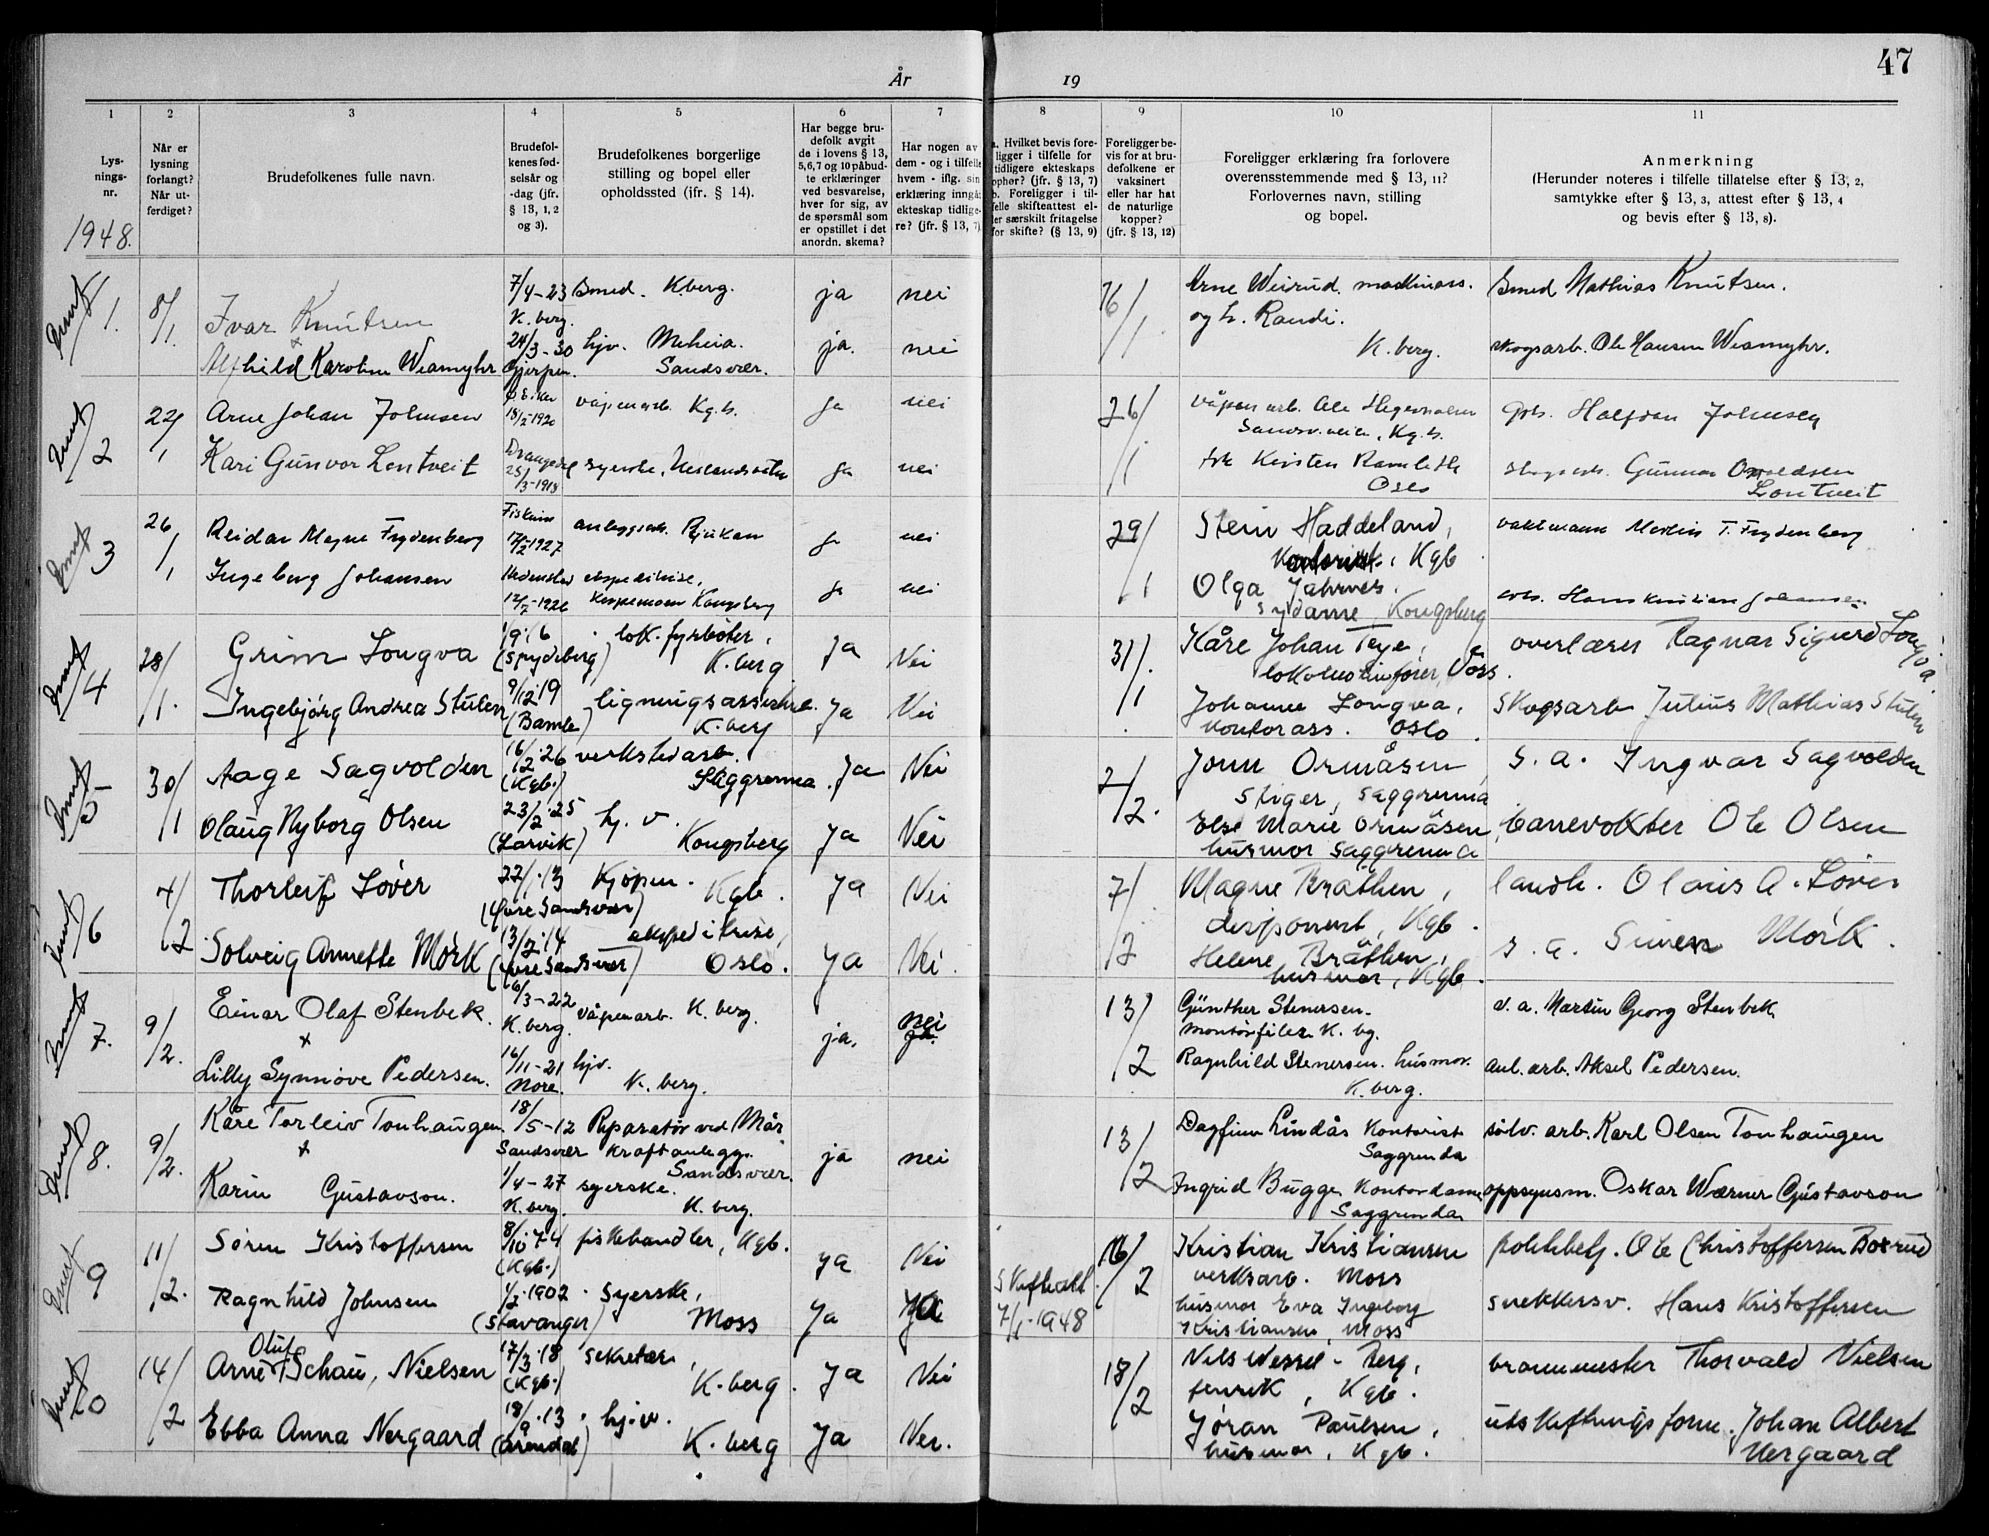 47
År 19
1 2 3 4 5 6 7 8 9 10 11
Lys-
nings-
nr.
Når er
lysning
forlangt?
Når ut-
ferdiget?
Brudefolkenes fulle navn.
Brudefol-
kenes fød-
selsår og
-dag (jfr.
§ 13, 1, 2
og 3).
Brudefolkenes borgerlige
stilling og bopel eller
opholdssted (jfr. § 14).
Har begge bru-
defolk avgit
de i lovens § 13,
5,6,7 og 10 påbud-
te erklæringer
ved besvarelse,
hver for sig, av
de spørsmål som
er opstillet i det
anordn. skema?
Har nogen av
dem - og i tilfelle
hvem - iflg. sin
erklæring inngåt
ekteskap tidlige-
re? (jfr. § 13, 7)
a. Hvilket bevis fore-
ligger i tilfelle for
tidligere ekteskaps
ophør? (jfr. § 13, 7)
b. Foreligger i til-
felle skifteattest el-
ler særskilt fritagelse
for skifte? (§ 13, 9)
Foreligger be-
vis for at bru-
defolkene er
vaksinert
eller har hat
de naturlige
kopper?
(jfr. § 13, 12)
Foreligger erklæring fra forlovere
overensstemmende med § 13, 11?
Forlovernes navn, stilling
og bopel.
Anmerkning
(Herunder noteres i tilfelle tillatelse efter § 13, 2,
samtykke efter § 13, 3, attest efter § 13, 4
og bevis efter § 13, 8).
1948.
1. 8/1. Ivar Knutsen 7/4-23 K.berg. Smed. K.berg. ja nei 16/1 Arne Weirud maskinarb. og h. Randi. K.berg. Smed Mathias Knutsen.
+
Alfhild Karoline Weamyhr 24/3-30 Gjerpen. hjv. Meheia. Sandsvær. ja. nei skogsarb. Ole Hansen Weamyhr.
2 22/1 Arne Johan Johnsen Ø. Eiker 18/5-1920 våpenarb. Kg.b. Ja nei 26/1 våpenarb. Ole Sandsv.veien, Kg.b. Halfdan Johnsen
Kari Gunvor Lontveit Drangedal 25/3-1918 syerske, Ja nei frk Kirsten Oslo Gunnar Lontveit
3 26/1 Reidar Magne Frydenberg 1927 anleggsarb. Rjukan Ja nei 29/1 Stein Haddeland, Kgb vaktmann T. Frydenberg
Ingeborg Johansen Hedenstad ekspeditrise, Kongsberg Ja nei Olga Kongsberg Hans Kristian Johansen
4 28/1. Grim Longva 1/9.16 (Spydeberg) lok.fyrbøter, K.berg Ja Nei 31/1 Kåre Johan Teye, lokomotivfører, Voss. overlærer Ragnar Sigurd Longva.
Ingebjørg Andrea Stulen 9/12.19 (Bamble) ligningsassistent. K.berg Ja Nei Johanne Longva, kontorass. Oslo. Skogsarb Julius Mathias Stulen
5 30/1 Aage Sagvolden 16/2.26 (Kgb.) verkstedarb. Saggrenna. Ja Nei 2/2. Jonn Ormåsen, Stiger, Saggrenna S. a. Ingvar Sagvolden
Olaug Nyborg Olsen 23/2.25 (Larvik) hj. v. Kongsberg Ja Nei Else Marie Ormåsen, husmor Saggrenna banevokter Ole Olsen
6 4/2 Thorleif Løver 22/1.13 (Øvre Sandsvær) Kjøpm. Kgb. Ja Nei 7/2 Magne Bråthen, disponent, Kgb. landh. Olaus A. Løver
Solveig Annette Mørk 13/2.14 (Øvre Sandsvær) ekspeditrise, Oslo. Ja Nei. Helene Bråthen, husmor, Kgb. s. a. Simen Mørk.
7. 9/2. Einar Olaf Stenbek. 6/3-22 K.berg. våpenarb. K.berg. ja. nei 13/2 Günther Stenersen. montørfiler K.bg. v. a. Martin Georg Stenbek
+
Lilly Synnøve Pedersen. 16/11-21 Nore. hjv. K.berg. Ragnhild Stenersen. husmor. K.berg. anl.arb. Aksel Pedersen.
8. 9/2. Kåre Torleiv Tonhaugen 18/5-12 Sandsvær Reparatør ved Mår kraftanlegg. Sandsvær. ja nei 13/2 Dagfinn Lindås Kontorist Saggrenda sølv. arb. Karl Olsen Tonhaugen
+
Karin Gustavson. 1/4-27 K.berg. syerske. K.berg. Ingrid Bugge Kontordame Saggrenda oppsynsm. Oskar Werner Gustavson
9 11/2. Søren Kristoffersen (Kgb.) fiskehandler, Kgb. Ja Nei 16/2 Kristian Kristiansen verksarb. Moss Ole Christoffersen Boxrud
Ragnhild Johnsen 1902 (Stavanger) Syerske, Moss Ja Ja Skifteatt. 7/1-1948 husmor Eva Ingeborg Kristiansen, Moss snekkersv. Hans Kristoffersen
10 14/2 Arne Oluf Schau, Nielsen 17/3.18 (Kgb.) sekretær, K.berg. Ja Nei 18/2 Nils Wessel-Berg, fenrik, Kgb. brannmester Thorvald Nielsen
Ebba Anna Nergaard 18/9.13 (Arendal) hj.v. K.berg Ja Nei. Jøran Paulsen, husmor, Kgb. utskiftningsform. Johan Albert Nergaard